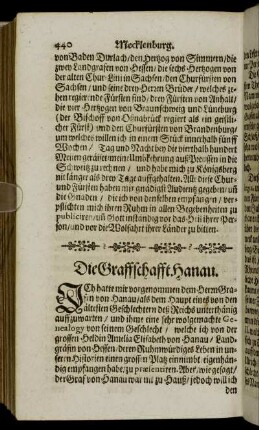 440 Mecklenburg.
von Baden Durlach / den Hertzog von Simmern / die
zwey Landgrafen von Hessen / die sechs Hertzogen von
der alten Chur-Linie in Sachsen / den Churfürsten von
Sachsen / und seine drey Herren Brüder / welches ze-
hen regierende Fürsten sind / drey Fürsten von Anhalt /
die vier Hertzogen von Braunschweig und Lüneburg
( der Bischoff von Osnabrück regiert als ein geistli-
cher Fürst) und den Churfürsten von Brandenburg /
um welches willen ich in einem Stück innerhalb fünff
Wochen / Tag und Nacht bey die vierthalb hundert
Meilen gereiset mein Umbkehrung auß Preussen in die
Schweitz zu rechnen / und habe mich zu Königsberg
nit länger als drey Tage auffgehalten. Alle diese Chur-
und Fürsten haben mir gnädigst Audientz gegeben / un
die Gnaden / die ich von denselben empfangen / ver-
pflichten mich ihren Ruhm in allen Begebenheiten zu
publiciren / un Gott inständig vor das Heil ihrer Per-
son / und vor die Wolfahrt ihrer Länder zu bitten.
Die Graffschafft Hanau.
ICh hatte mir vorgenommen dem Herrn Gra-
fen von Hanau / als dem Haupt eines von den
ältesten Geschlechtern des Reichs unterthänig
auffzuwarten / und ihme eine sehr wolgemachte Ge-
nealogy von seinem Geschlecht / welche ich von der
grossen Heldin Amelia Elisabeth von Hanau / Land-
gräfin von Hessen / deren Ruhmwürdiges Leben in un-
seren Historien einen grossen Platz einnimbt / eigenhän-
dig empfangen habe / zu præsentiren. Aber / wie gesagt /
der Graf von Hanau war nit zu Hauß / jedoch will ich
den